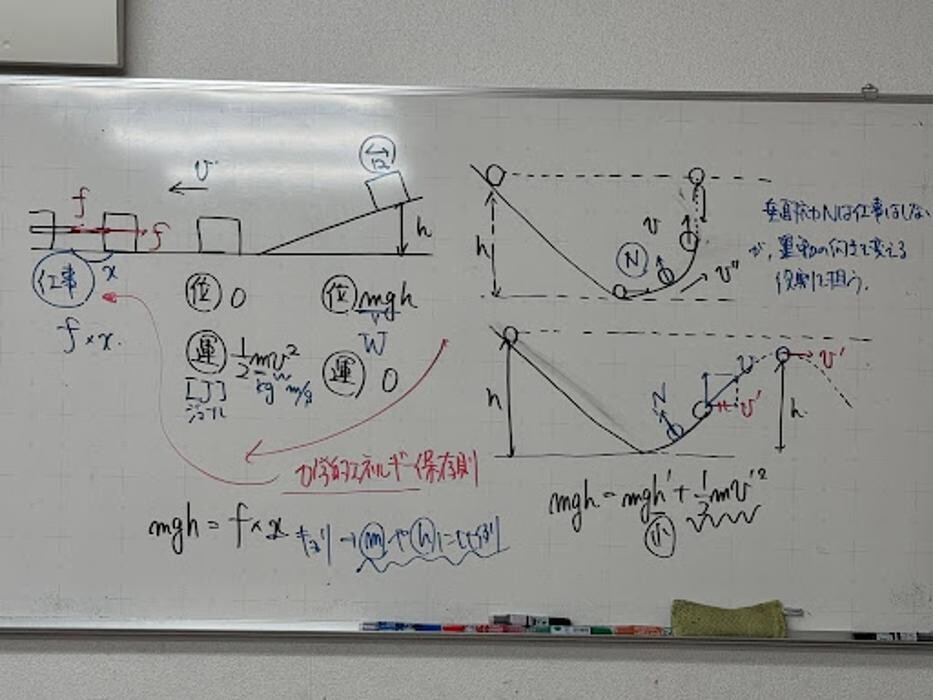 v
f
f
x
仕事
f×x.
位 0
運 1/2 mv²
kg m/s
[J]
ジュール
h
位 mgh
W
運 0
力学的エネルギー保存則
mgh = f×x より → m や h に比例
h
N
v
v"
垂直抗力Nは仕事はしない
が、運動の向きを変える
役割を担う.
h
N
v
v'
v'
h.
mgh = mgh' + 1/2 mv'²
小